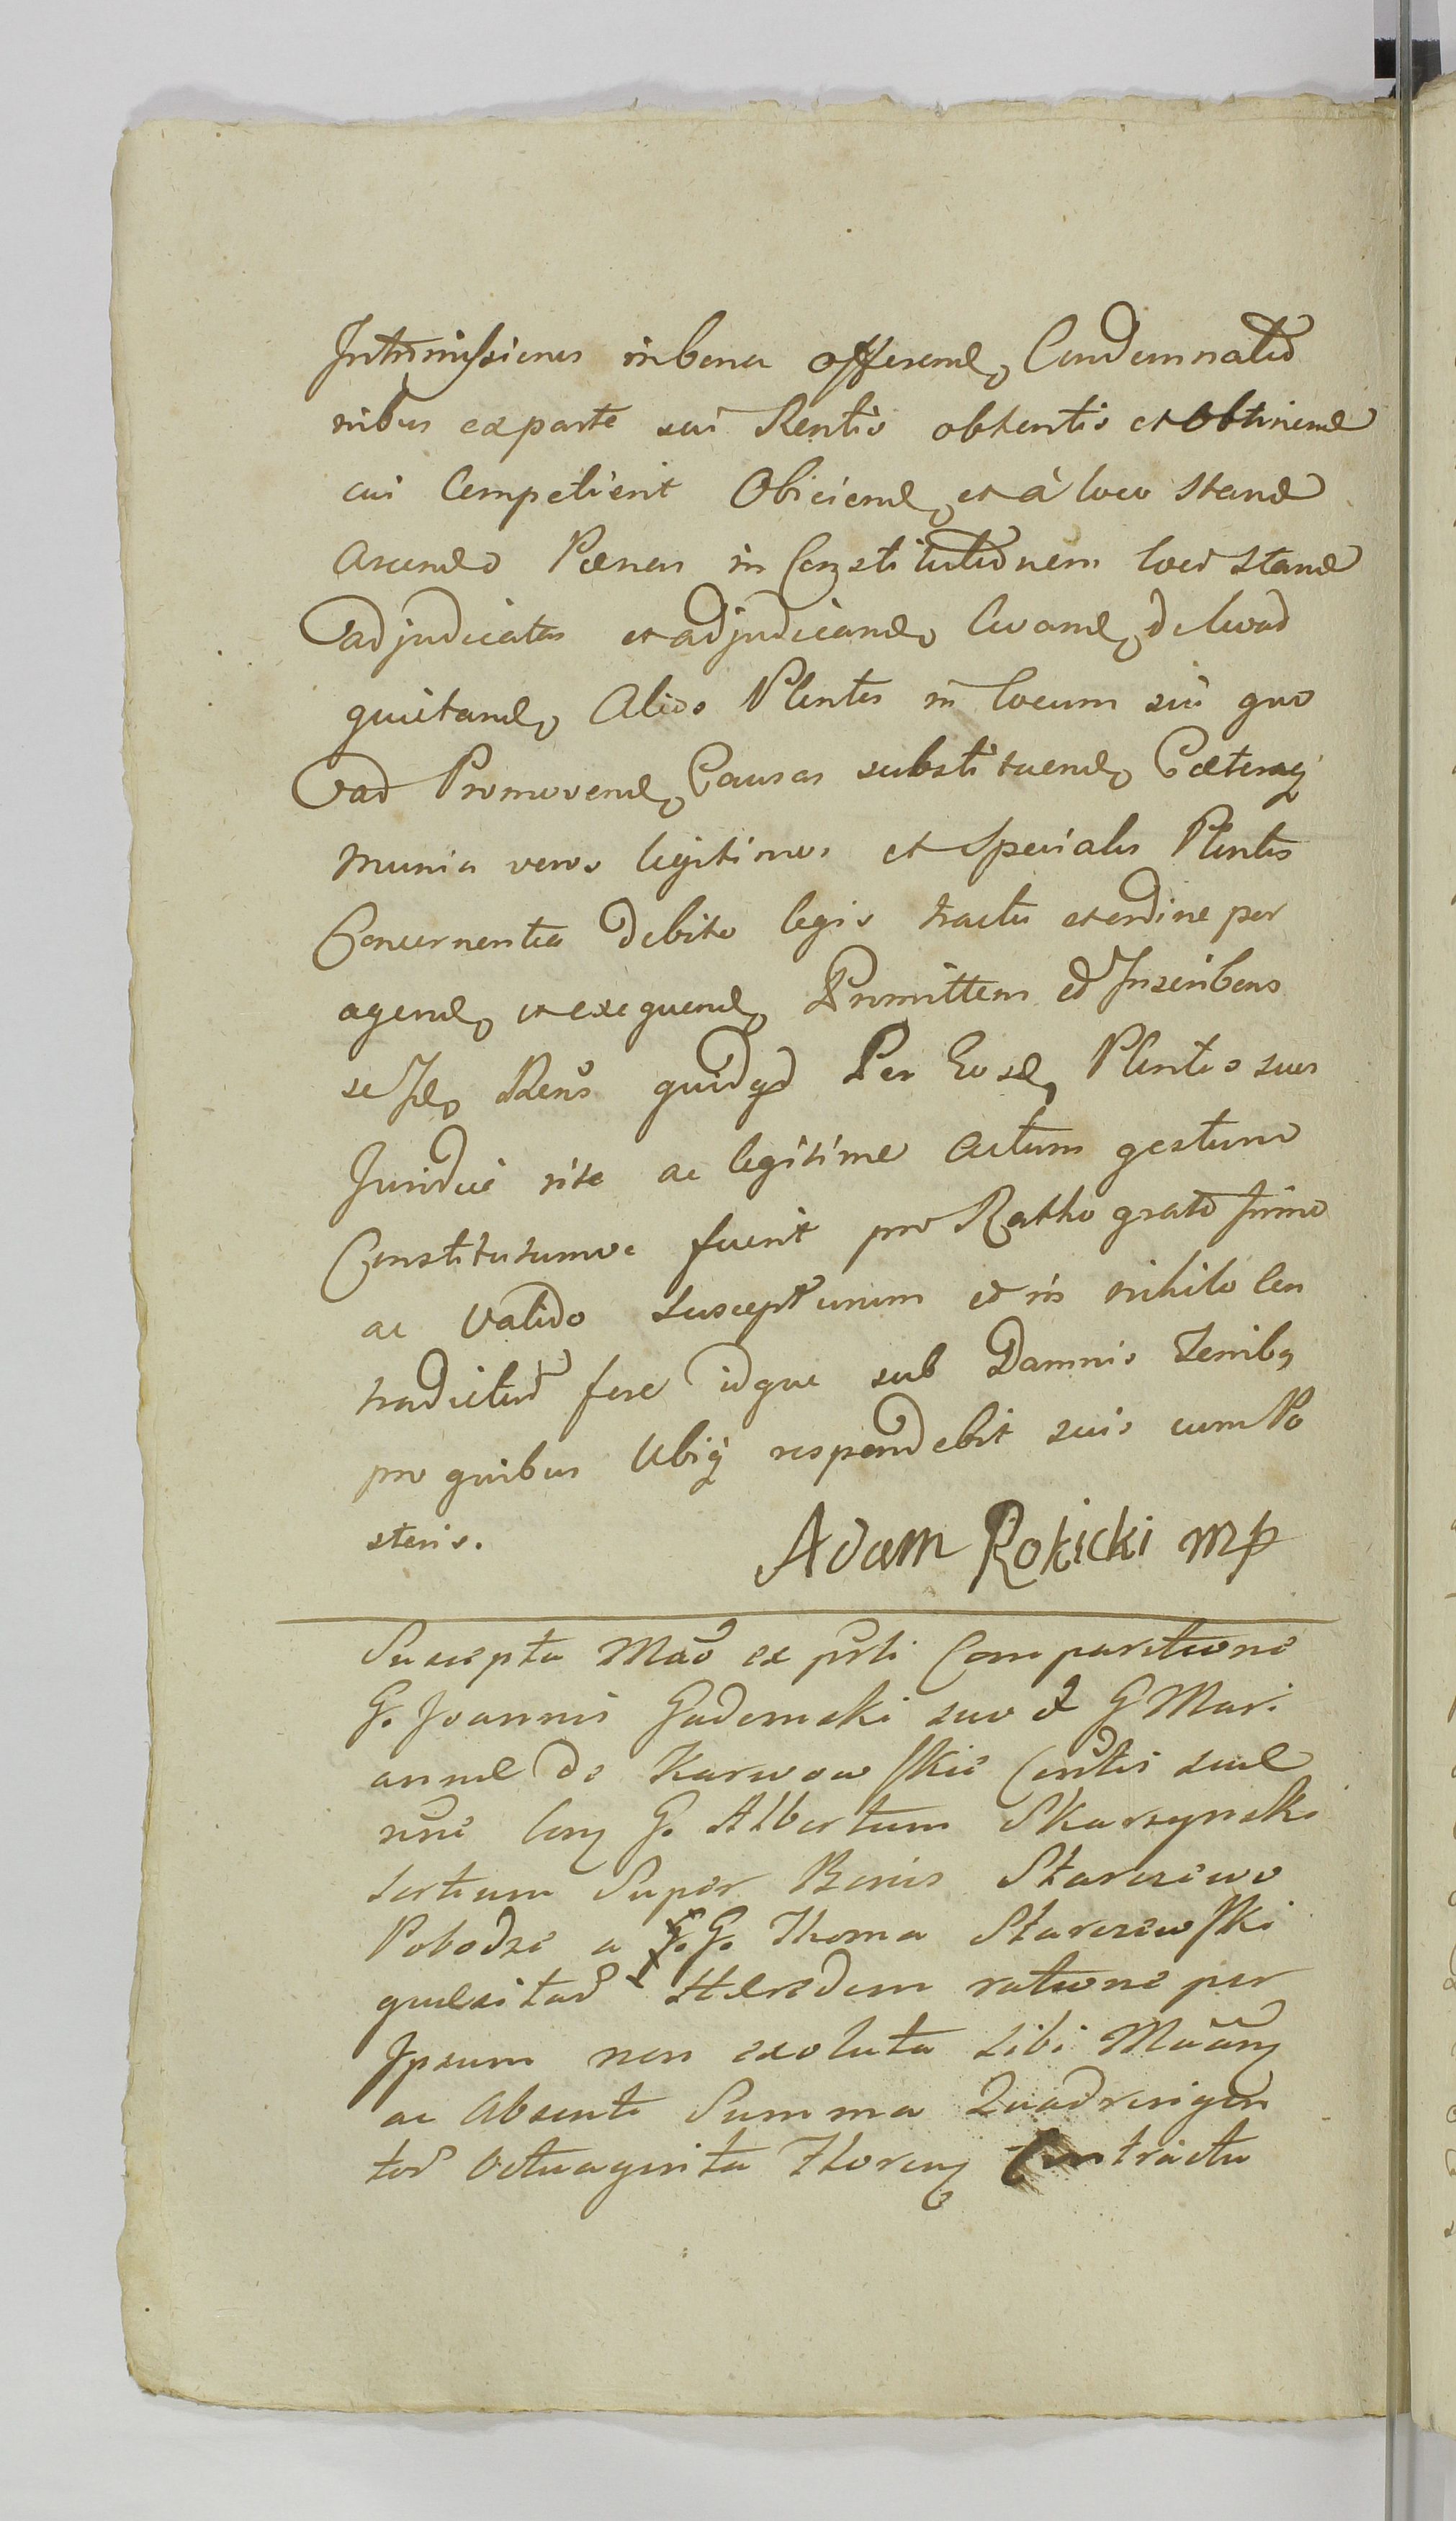 Intromissiones in bona offerend, Condemnatio
nibus ex parte sui Rentis obtentis et obtinend
cui Competierit Obiiciend, et à loco Stand
Arcendo Pœnas in Constitutionem loci Stand
adjudicatas et adjudicand, luand, de luad
quietand, Alios Plentes in locum sui quo
ad Promovend, Causas substituend, Cæteraq
munia veros legitimos et Speciales Plentes
Concernentia debito legis tractu et ordine per
agend, et exequend, Promittens et Inscribens
se Id, Rens quidqd Per Eosd, Plentes suos
Juridice rite ac legitime Actum gestum
Constitutumve fuerit pro Ratho grato firmo
ac Valido suscepturum et in nihilo Con
tradictur fore idque sub Damnis Terrib9
pro quibus Ubiq respondebit suis cum Po
steris.
Adam Rokicki mp
Suscepta Mao ex prti Comparitione
G. Joannis Gadomski suo et G Mari
annæ de Karwowskie Contis suæ
nne Con G. Albertum Skarzynski
tertium Super Bonis Starczewo
Pobodze a G. Thoma Starczewski
quæsitar Hæredem ratione per
Ipsum non exoluta sibi
ac Absenti Summa Quadringen
tor Octuaginta Floren Contractu